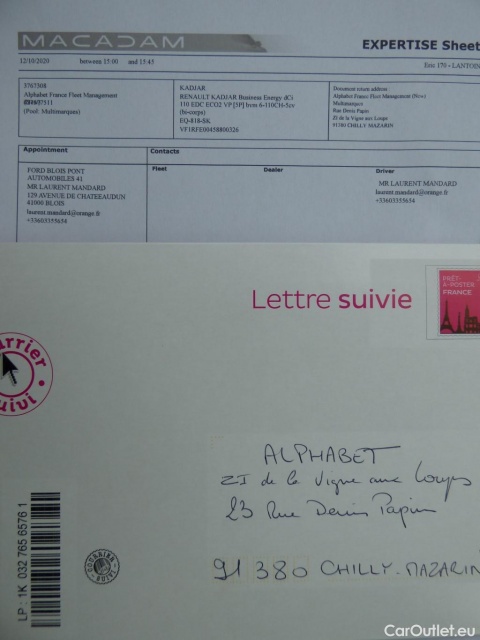 MACADAM
EXPERTISE Sheet
12/10/2020 between 15:00 and 15:45
Eric 170 - LANTOIN
3767308
Alphabet France Fleet Management
(Pool: Multimarques)
KADJAR
RENAULT KADJAR Business Energy dCi
110 EDC ECO2 VP [5P] brm 6-110CH-5cv
(bi-corps)
EQ-818-SK
VF1RFE00458800326
Document return address
Alphabet France Fleet Management (New)
Multimarques
Rue Denis Papin
ZI de la Vigne aux Loups
91380 CHILLY MAZARIN
Appointment
Contacts
FORD BLOIS PONT
AUTOMOBILES 41
MR LAURENT MANDARD
129 AVENUE DE CHATEAUDUN
41000 BLOIS
laurent.mandard@orange.fr
+33603355654
Fleet
Dealer
Driver
MR LAURENT MANDARD
laurent.mandard@orange.fr
+33603355654
Lettre suivie
PRÊT-
À-POSTER
FRANCE
urrier
suivi
ALPHABET
ZI de la Vigne aux Loups
23 Rue Denis Papin
91 380 CHILLY-MAZARIN
LP : 1K 032 765 6576 1
COURRIER
SUIVI
CarOutlet.eu